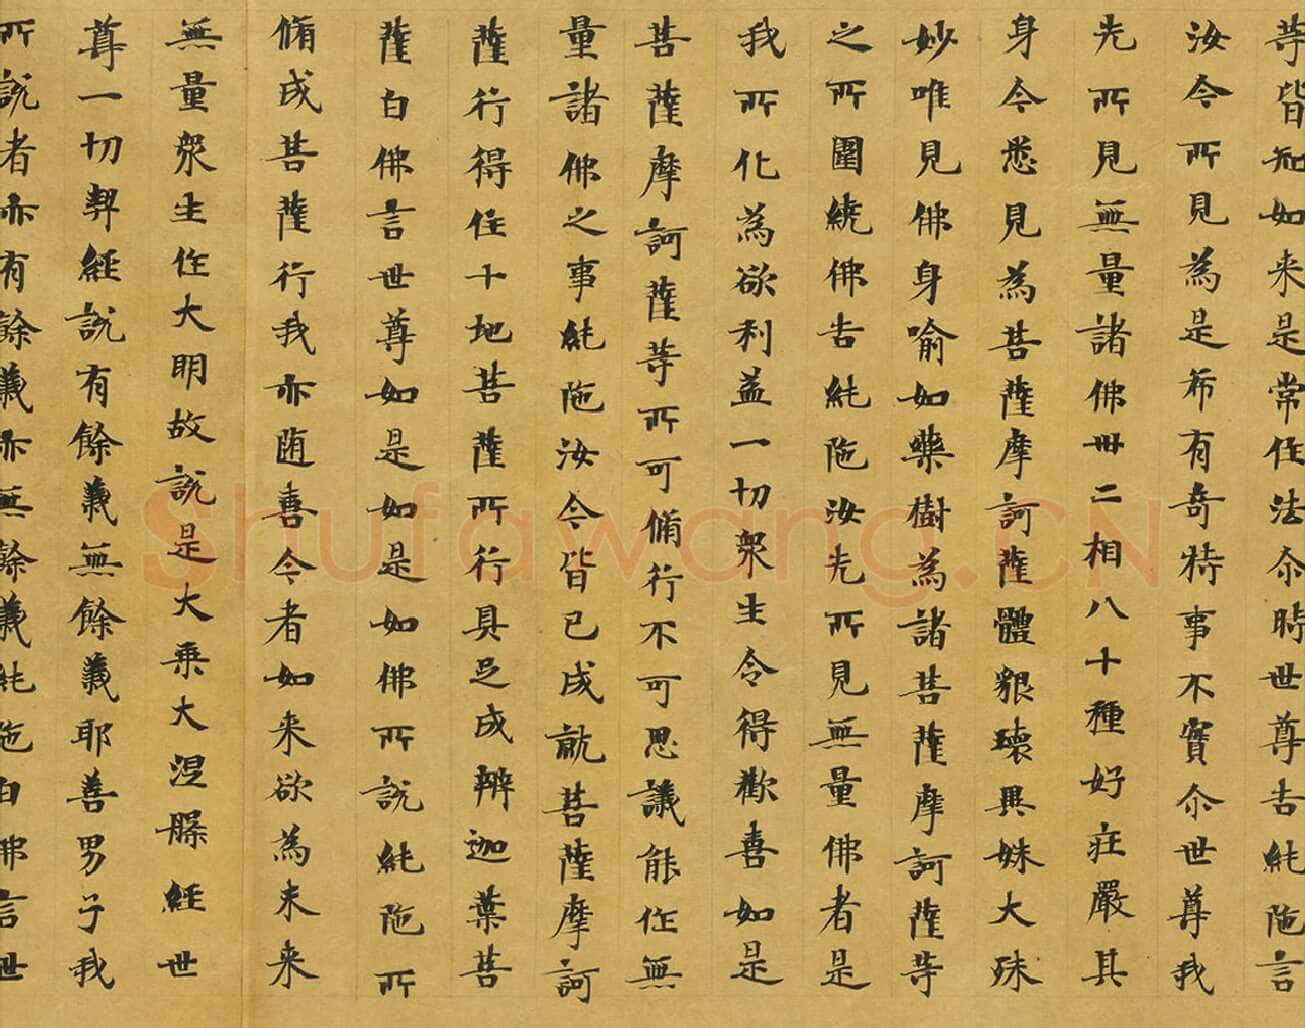 等皆知如来是常住法尒時世尊告純陁言
汝今所見為是希有奇特事不實尒世尊我
先所見無量諸佛卅二相八十種好莊嚴其
身今悉見為菩薩摩訶薩體貌瓌異姝大殊
妙唯見佛身喻如藥樹為諸菩薩摩訶薩等
之所圍繞佛告純陁汝先所見無量佛者是
我所化為欲利益一切衆生令得歡喜如是
菩薩摩訶薩等所可脩行不可思議能作無
量諸佛之事純陁汝今皆已成就菩薩摩訶
薩行得住十地菩薩所行具足成辦迦葉菩
薩白佛言世尊如是如是如佛所說純陁所
脩成菩薩行我亦随喜今者如来欲為未来
無量衆生作大明故說是大乘大涅槃經世
尊一切契經說有餘義無餘義耶善男子我
所說者亦有餘義亦無餘義純陁白佛言世
Shufawang.CN